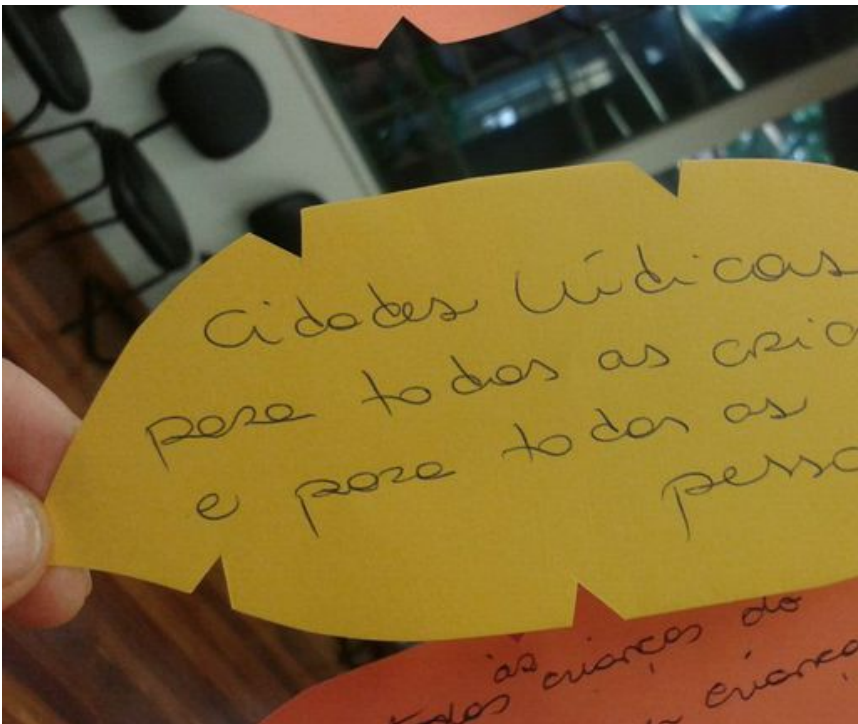 Cidades lúdicas
para todas as cria
e para todas as
pesso
às
todas crianças do
criança